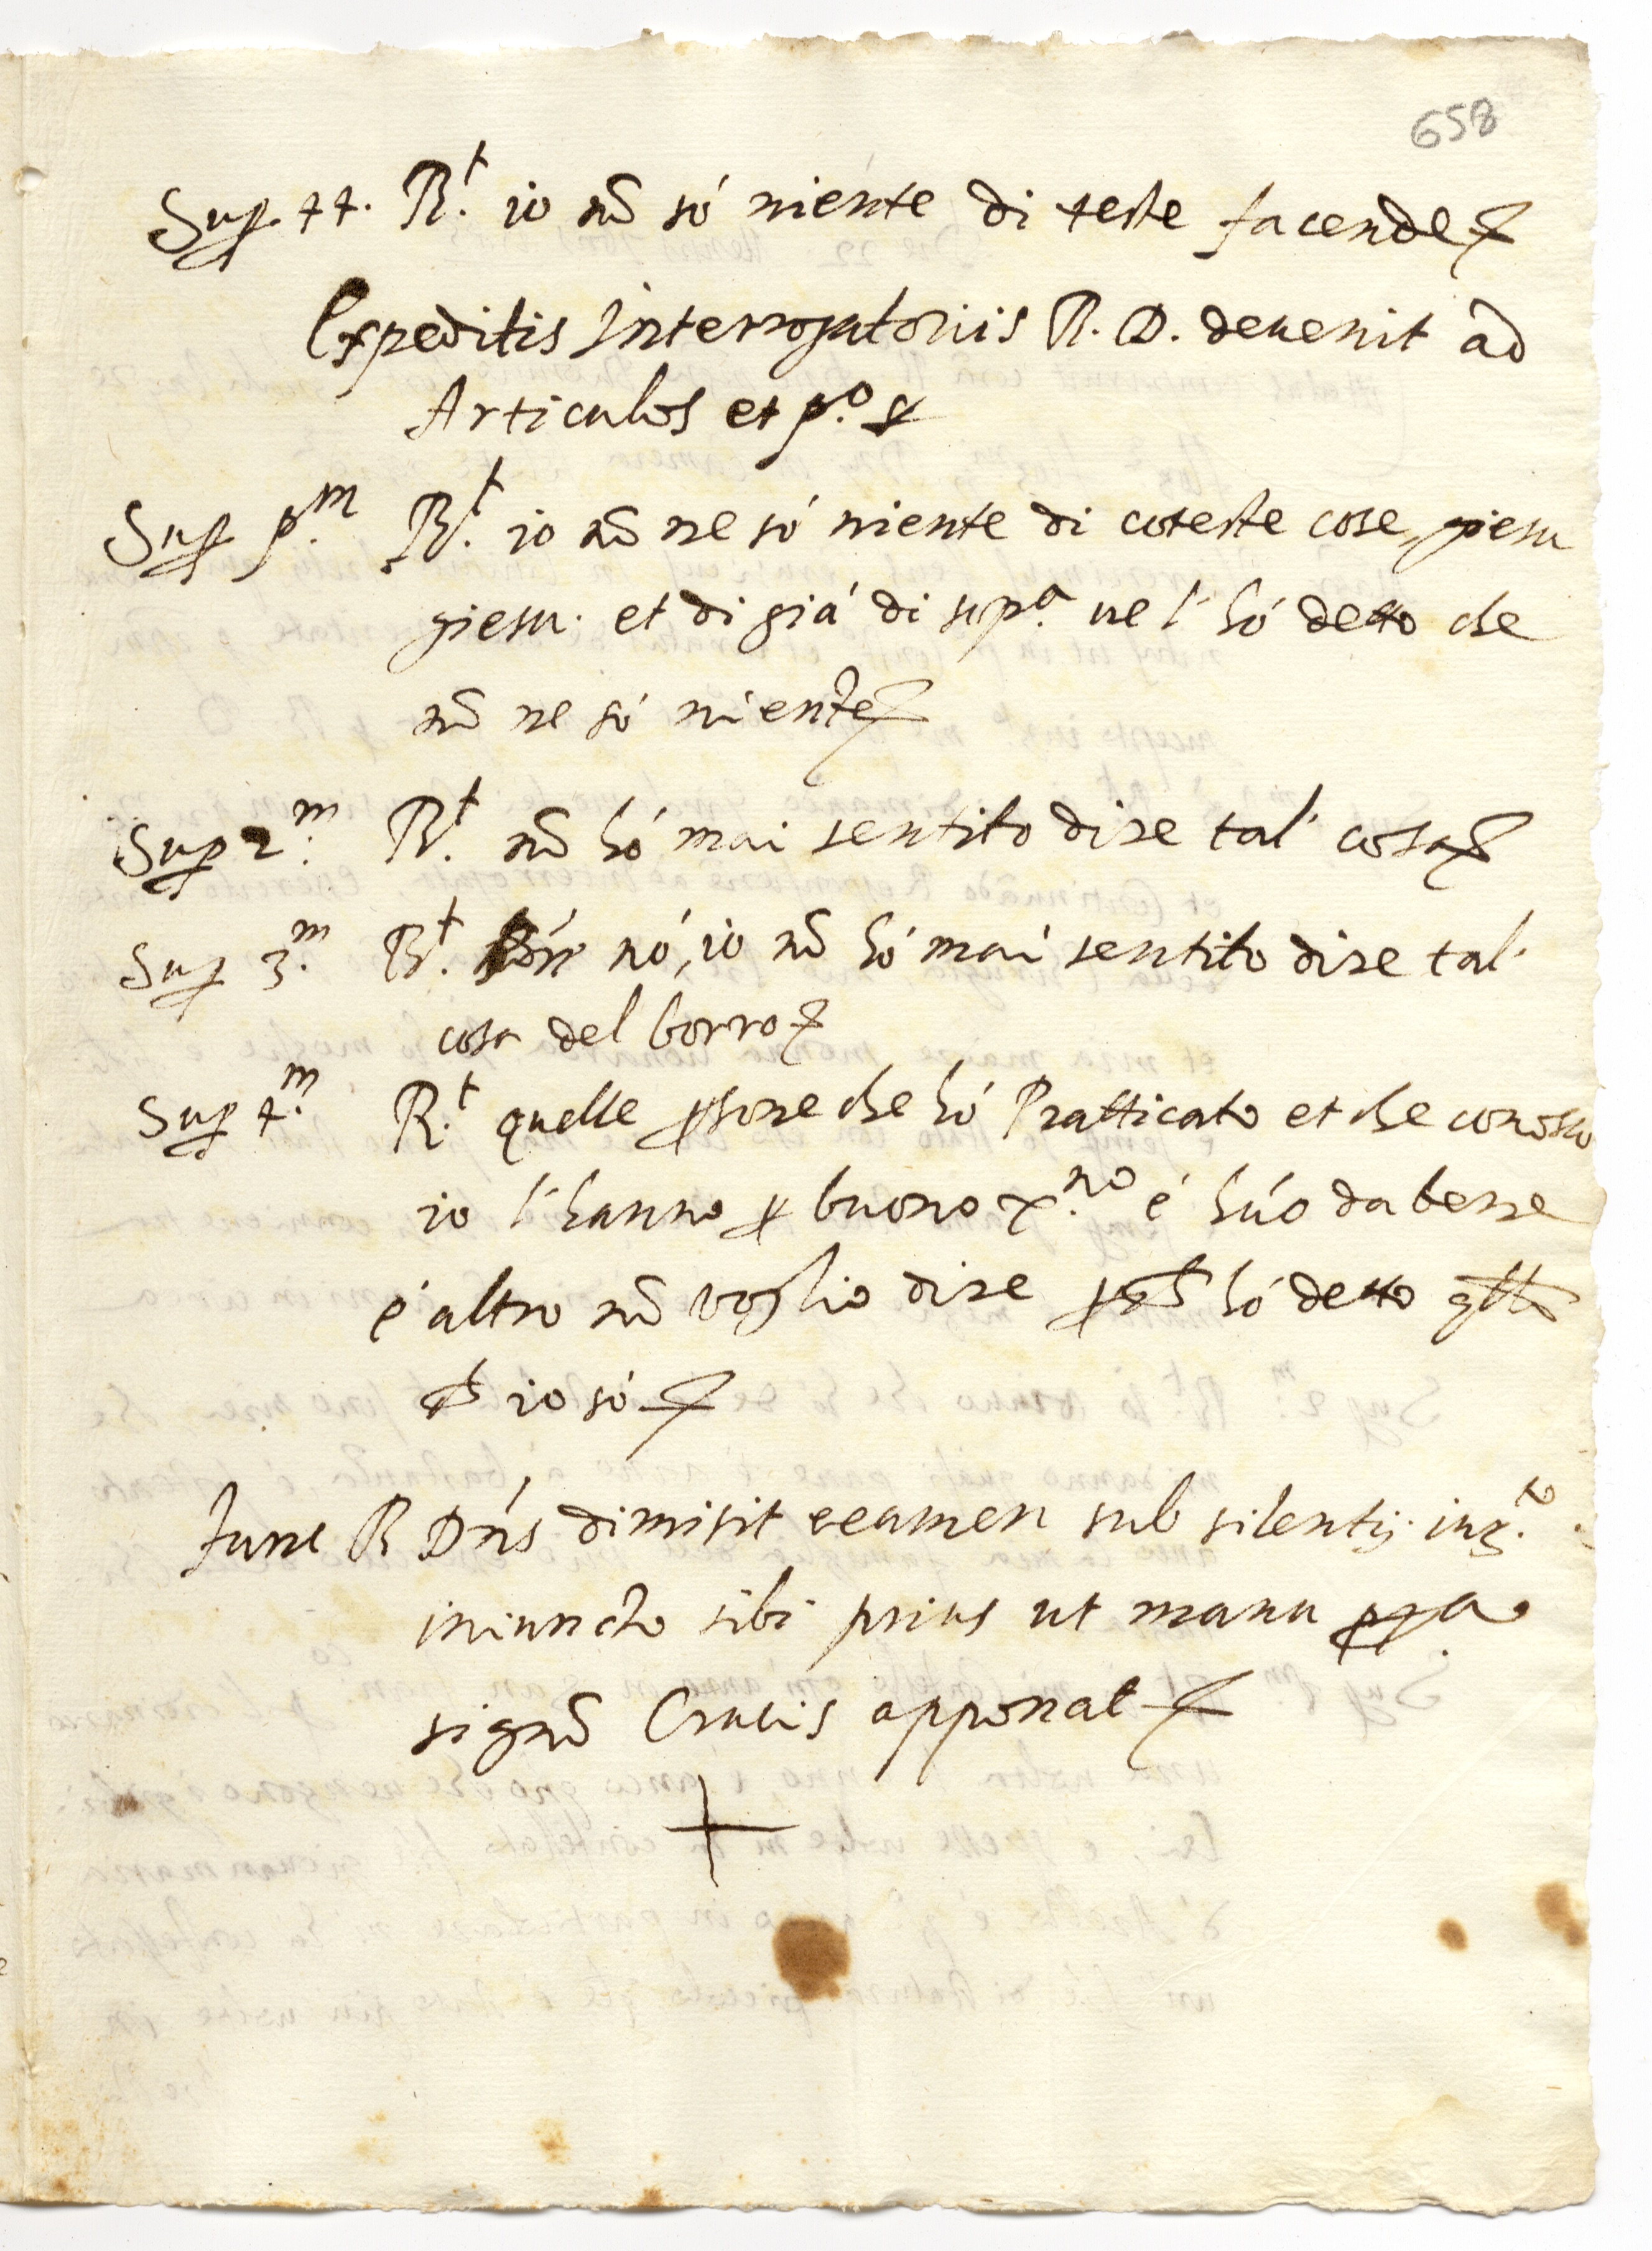 658
Sup. 44. R.t io nõ só niente di teste facende
Expeditis Interrogatoriis R. D. deuenit ad
Articulos et p.o
Sup p.m R.t io nõ ne só niente di coteste cose, giesu
giesu. et di giá di sop.a ue l' hó detto che
nõ ne só niente
Sup 2.m R.t nõ hó mai sentito dire tal' cosa
Sup 3.m R.t nó, io nõ hó mai sentito dire tal'
cosa del borro
Sup 4.m R.t quelle psone che hó Pratticato et che conosco
io l' hanno p buono x.no é húo da bene
é altro nõ voglio dire hó detto
ch io só
Tunc R Dńs dimisit examen sub silentij iur.to
iniuncto sibi prius ut manu ppa
signũ Crucis apponat
+